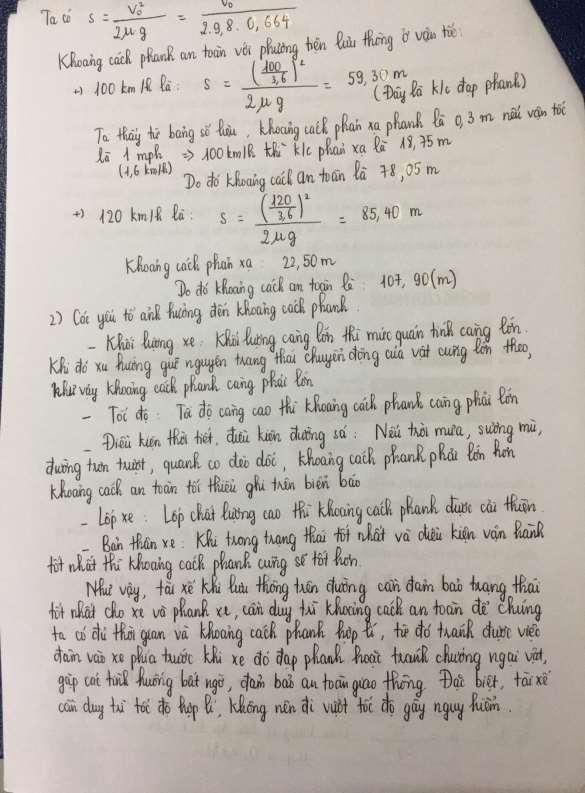 Ta có s = V₀² / 2μg = V₀² / 2.9,8.0,664
Khoảng cách phanh an toàn với phương tiện lưu thông ở vận tốc:
+) 100 km/h là: s = (100/3,6)² / 2μg = 59,30 m
(Đây là k/c đạp phanh)
Ta thấy từ bảng số liệu, khoảng cách phản xạ phanh là 0,3 m nếu vận tốc
là 1 mph ⇒ 100km/h thì k/c phản xạ là 18,75 m
(1,6 km/h)
Do đó khoảng cách an toàn là 78,05 m
+) 120 km/h là: s = (120/3,6)² / 2μg = 85,40 m
Khoảng cách phản xạ: 22,50 m
Do đó khoảng cách an toàn là: 107,90(m)
2) Các yếu tố ảnh hưởng đến khoảng cách phanh.
- Khối lượng xe: Khối lượng càng lớn thì mức quán tính càng lớn.
Khi đó xu hướng giữ nguyên trạng thái chuyển động của vật cũng lớn theo,
như vậy khoảng cách phanh càng phải lớn
- Tốc độ: Tốc độ càng cao thì khoảng cách phanh càng phải lớn
- Điều kiện thời tiết, điều kiện đường sá: Nếu trời mưa, sương mù,
đường trơn trượt, quanh co đèo dốc, khoảng cách phanh phải lớn hơn
khoảng cách an toàn tối thiểu ghi trên biển báo
- Lốp xe: Lốp chất lượng cao thì khoảng cách phanh được cải thiện.
- Bản thân xe: Khi trong trạng thái tốt nhất và điều kiện vận hành
tốt nhất thì khoảng cách phanh cũng sẽ tốt hơn.
Như vậy, tài xế khi lưu thông trên đường cần đảm bảo trạng thái
tốt nhất cho xe và phanh xe, cần duy trì khoảng cách an toàn để chúng
ta có đủ thời gian và khoảng cách phanh hợp lí, từ đó tránh được việc
đâm vào xe phía trước khi xe đó đạp phanh hoặc tránh chướng ngại vật,
gặp các tình huống bất ngờ, đảm bảo an toàn giao thông. Đặc biệt, tài xế
cần duy trì tốc độ hợp lí, không nên đi vượt tốc độ gây nguy hiểm.